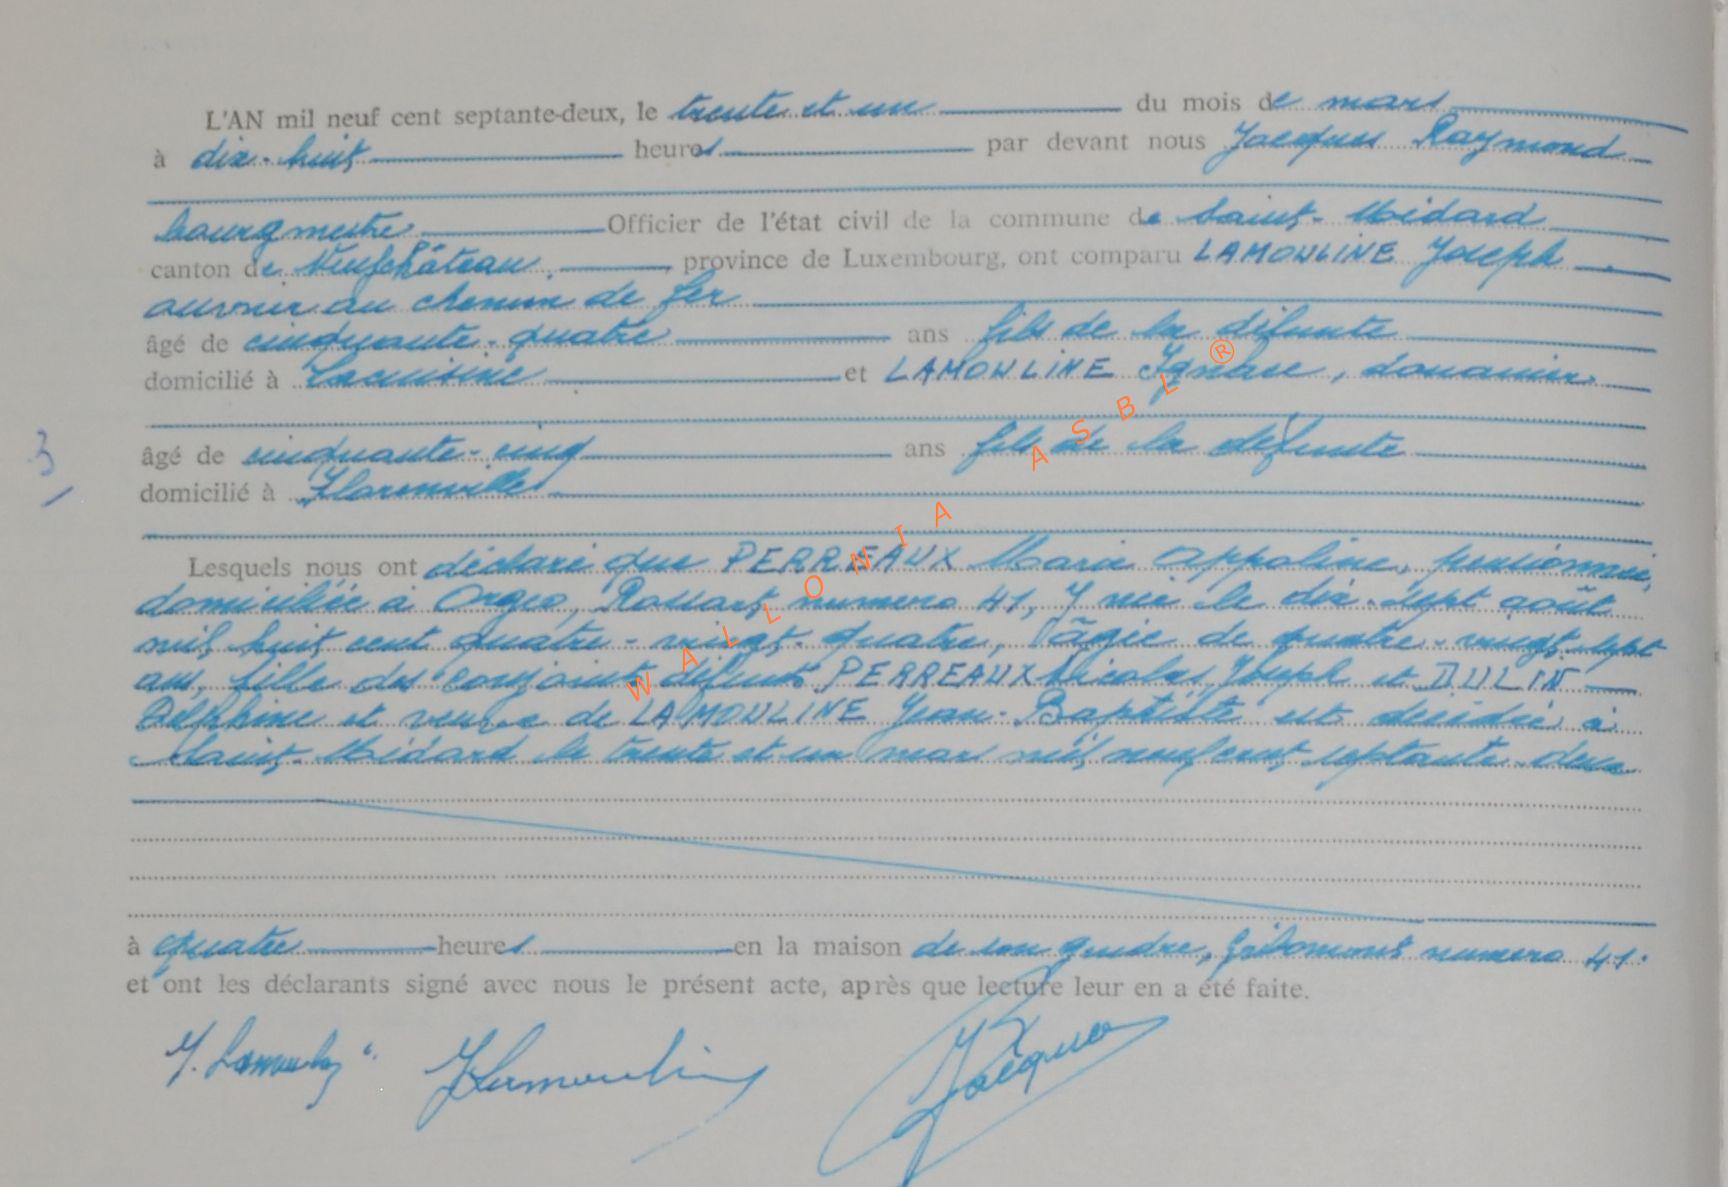 L'AN mil neuf cent septante-deux, le trente et un du mois de mars
à dix-huit heures par devant nous Jacques Raymond
bourgmestre Officier de l'état civil de la commune de Saint-Médard
canton de Neufchâteau, province de Luxembourg, ont comparu LAMOULINE Joseph
ouvrier au chemin de fer
âgé de cinquante-quatre ans fils de la défunte
domicilié à Lacuisine et LAMOULINE Ignace, douanier
âgé de cinquante-cinq ans fils de la défunte
3
domicilié à Florenville
Lesquels nous ont déclaré que PERREAUX Marie Appoline, pensionnée,
domiciliée à Orgeo, Rossart numero 41, y née le dix-sept août
mil huit cent quatre-vingt-quatre, âgée de quatre-vingt-sept
ans, fille des conjoints défunts PERREAUX Nicolas Joseph et DULIN
Delphine et veuve de LAMOULINE Jean-Baptiste est décédée à
Saint-Médard le trente et un mars mil neuf cent septante-deux
à quatre heures en la maison de son gendre, Gribomont numero 41.
et ont les déclarants signé avec nous le présent acte, après que lecture leur en a été faite.
J. Lamouline Lamouline Jacques
WALLONIA ASBL ®